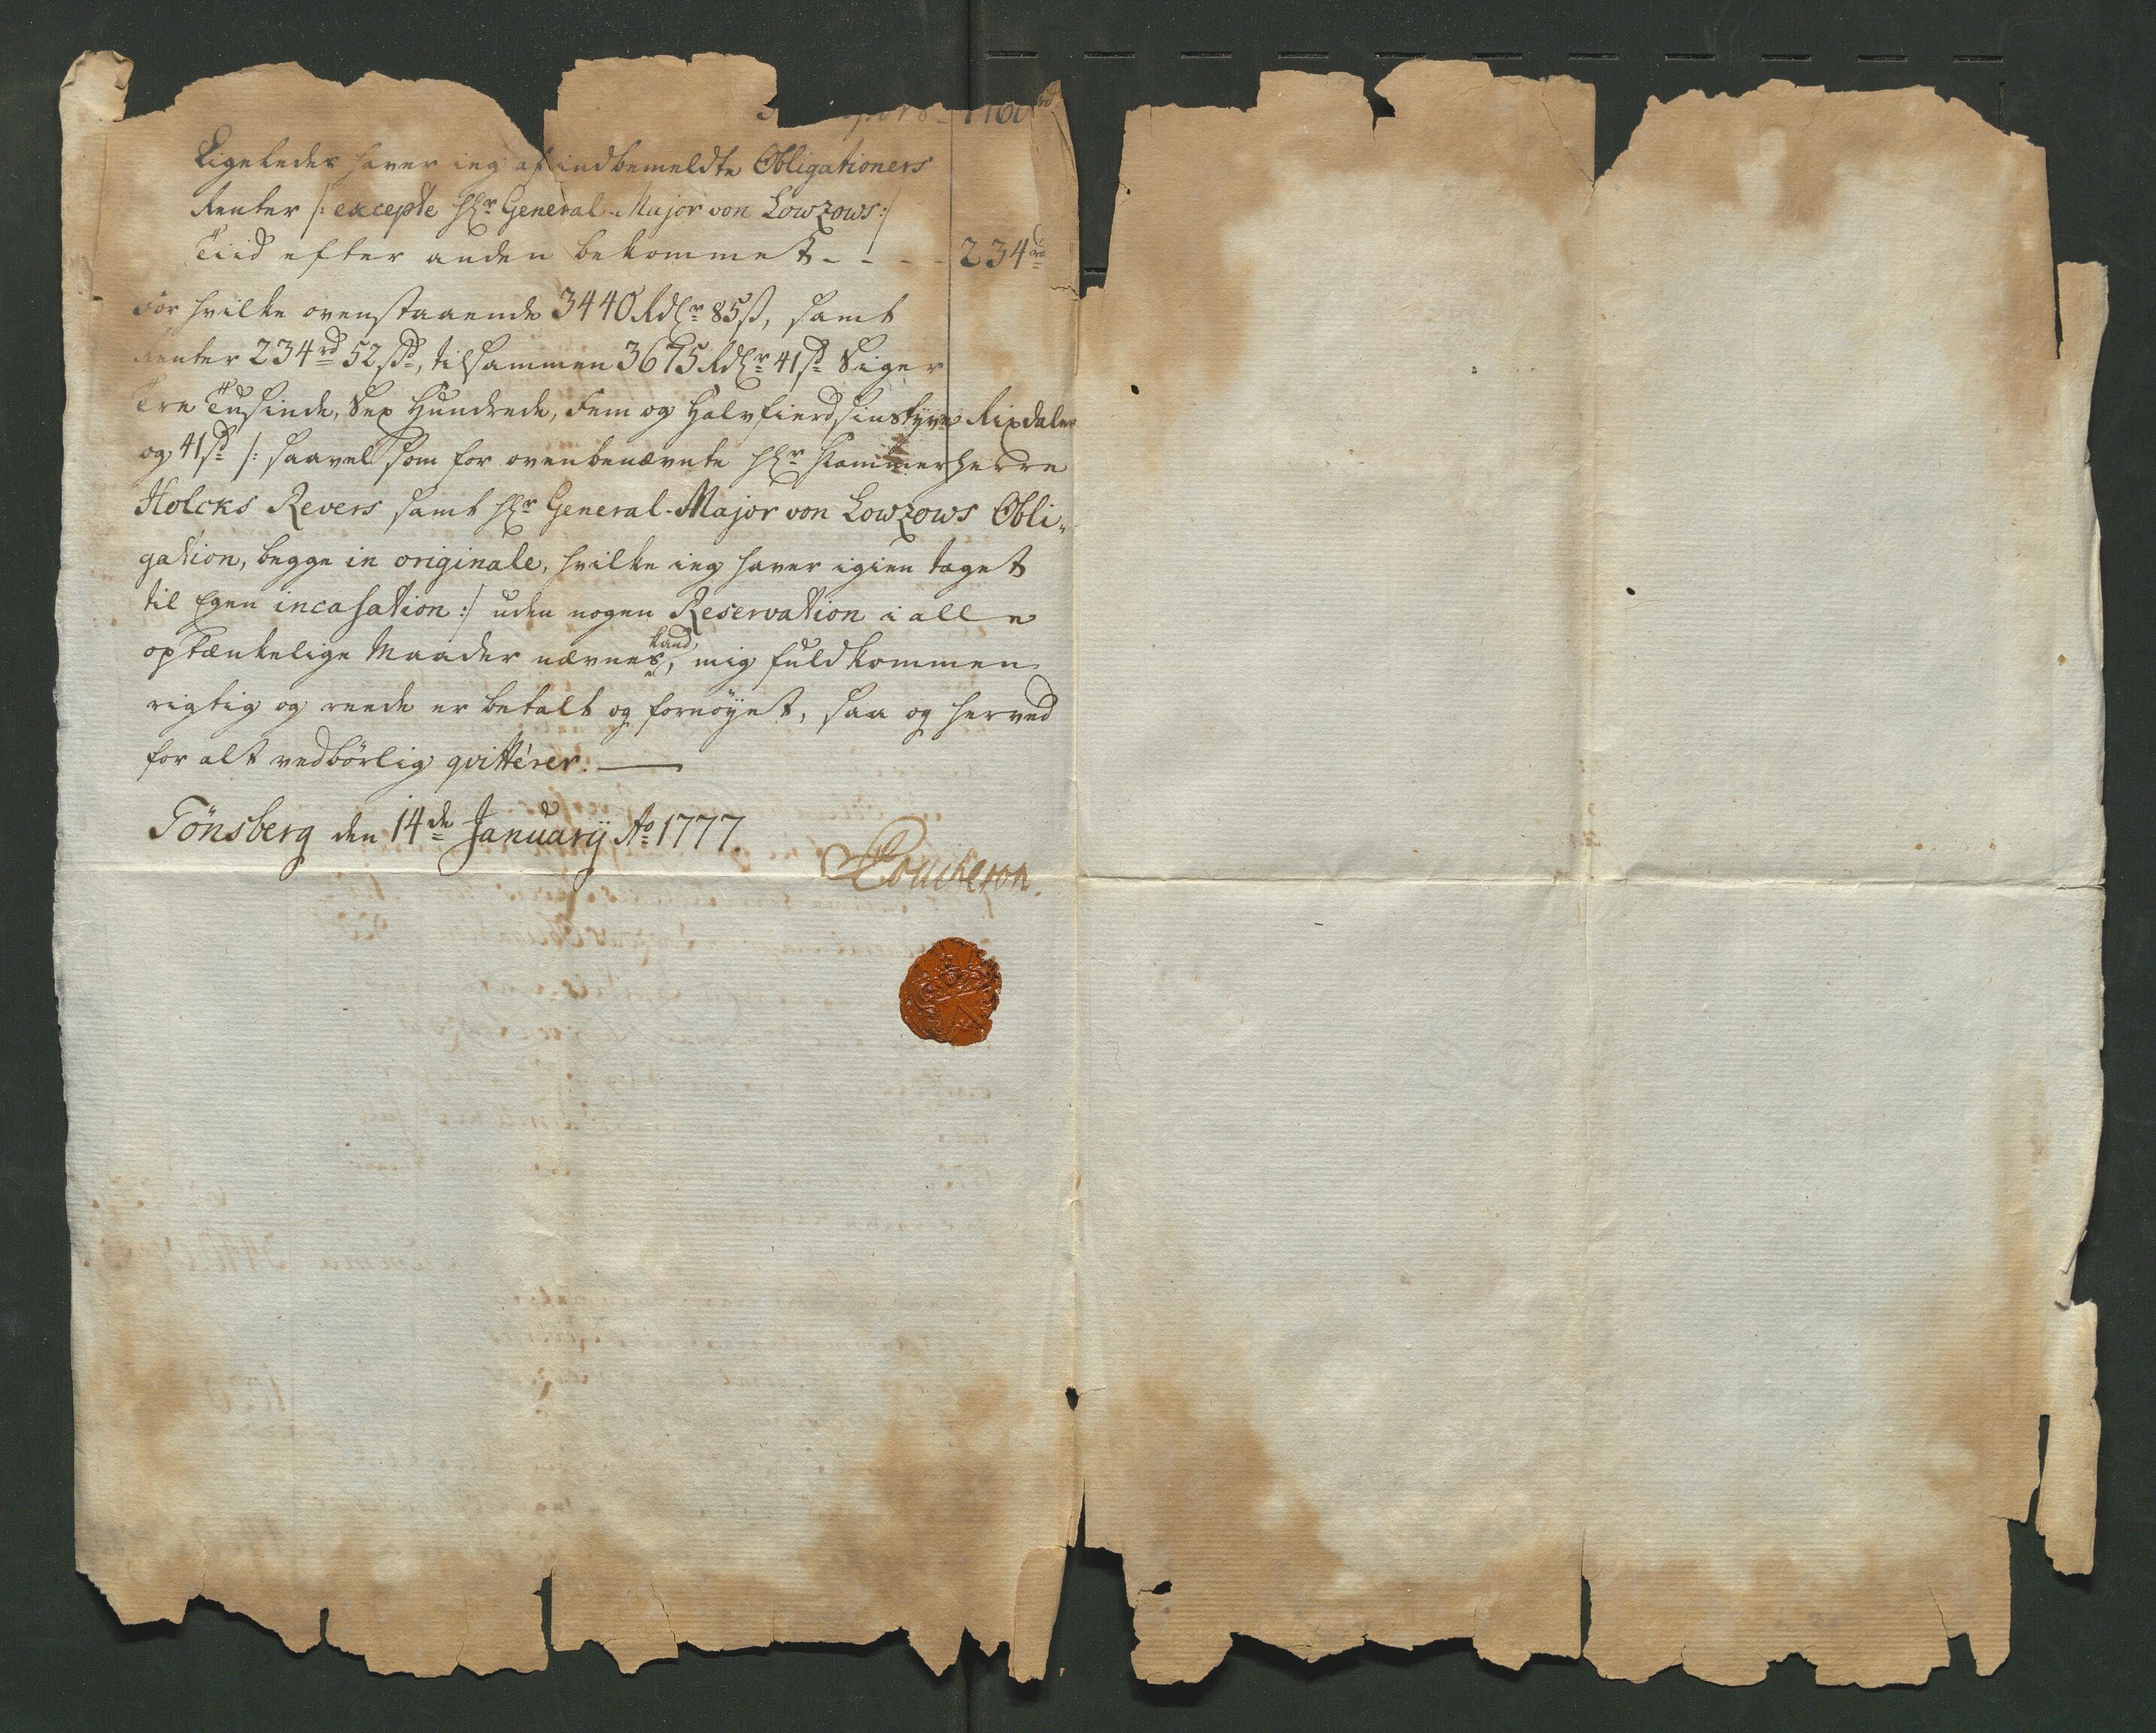 1160 rd
Ligeledes haver ieg af indbemeldte Obligationers
Renter /: excepte Hr General-Major von Lowzows :/
Tiid efter anden bekommet - - - - 234 rd
For hvilke ovenstaaende 3440 Rdlr 85 ß, samt
Renter 234 rd 52 ß, tilsammen 3675 Rdlr 41 ß Siger
Tre Tusinde, Sex Hundrede, Fem og Halvfierdsinstyve Rixdaler
og 41 ß /: saavel som for ovenbenævnte Hr Kammerherre
Holcks Revers samt Hr General-Major von Lowzows Obli-
gation, begge in originale, hvilke ieg haver igien taget
til Egen incasation :/ uden nogen Reservation i alle
optænkelige Maader nævnes kand, mig fuldkommen
rigtig og reede er betalt og fornöyet, saa og herved
for alt vedbörlig qvittérer. —
Tönsberg den 14de Januarij Ao 1777.
Coucheron.